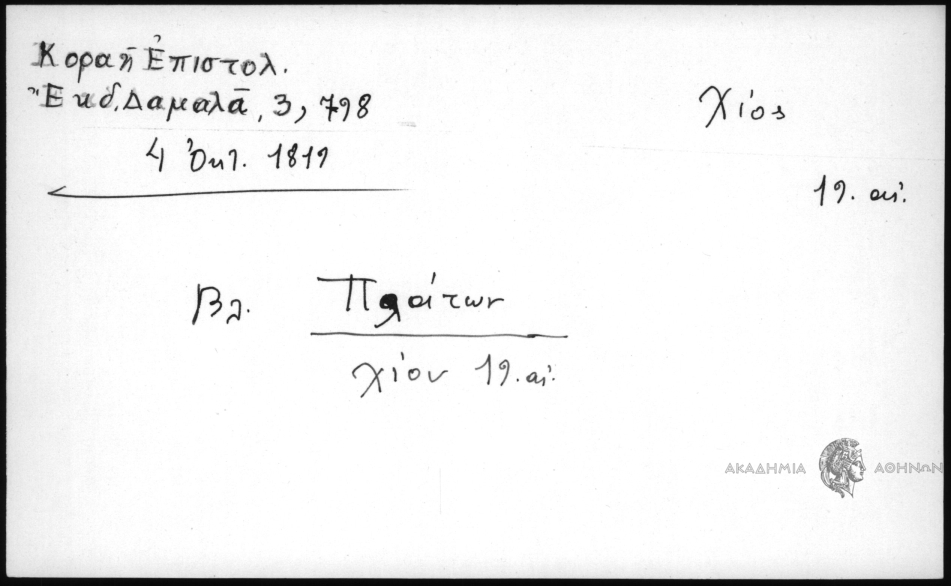 Κοραῆ Ἐπιστολ.
Ἔκδ. Δαμαλᾶ, 3, 798
4 Ὀκτ. 1819
Χίος
19. αἰ.
Βλ. Πλάτων
Χίου 19. αἰ.
ΑΚΑΔΗΜΙΑ ΑΘΗΝΩΝ